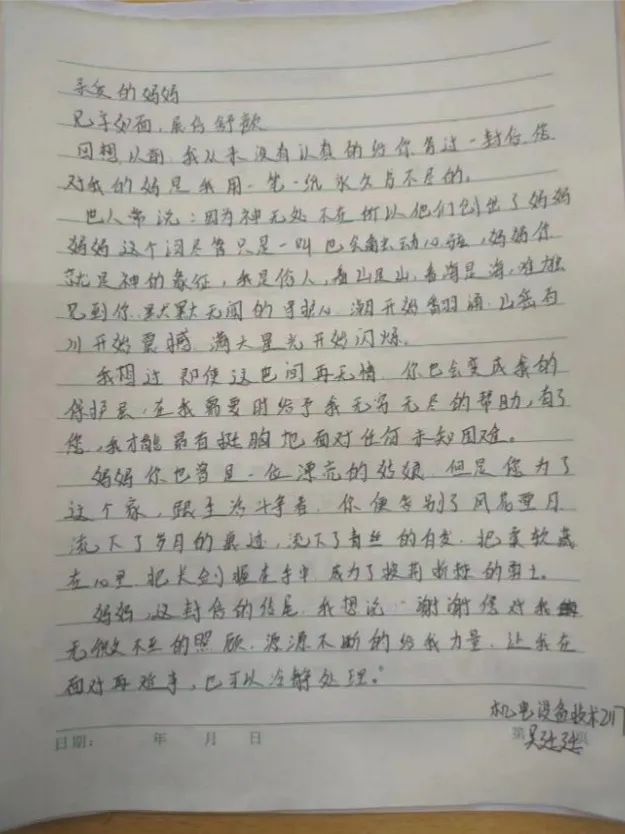 亲爱的妈妈
见字如面，展信舒颜
回想以前，我从来没有认真的给你写过一封信，信
对我的妈是我用一笔一纸永久写不尽的。
世人常说：因为神无处不在所以他们创出了妈妈
妈妈这个词尽管只是一叫也头触动心弦，妈妈你
就是神的象征，我是俗人，看山是山，看海是海，唯独
见到你，默默无闻的守护，潮开始翻涌，山密百
川开始震撼，满天星光开始闪烁。
我想过即使这世间再无情，你也会变成我的
保护层，在我需要时给予我无穷无尽的帮助，有了
您，我才能昂首挺胸地面对任何未知困难。
妈妈你也曾是一位漂亮的姑娘，但是您为了
这个家，跟生活斗争着，你便告别了风花雪月
流下了岁月的痕迹，流下了青丝的白发，把柔软藏
在心里，把长剑握在手中，成为了披荆斩棘的勇士。
妈妈，这封信的结尾，我想说“谢谢您对我
无微不至的照顾，源源不断的给我力量，让我在
面对再难事，也可以冷静处理。”
机电设备技术217
日期： 年 月 日 第 页